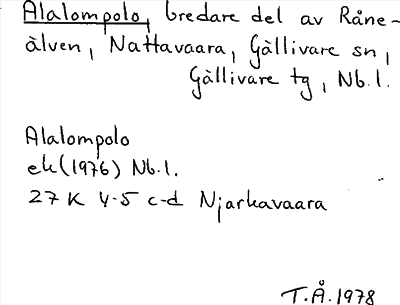 Alalompolo, bredare del av Råne-
älven, Nattavaara, Gällivare sn,
Gällivare tg, Nb.l.
Alalompolo
ek(1976) Nb.l.
27 K 4-5 c-d Njarkavaara
T.Å.1978